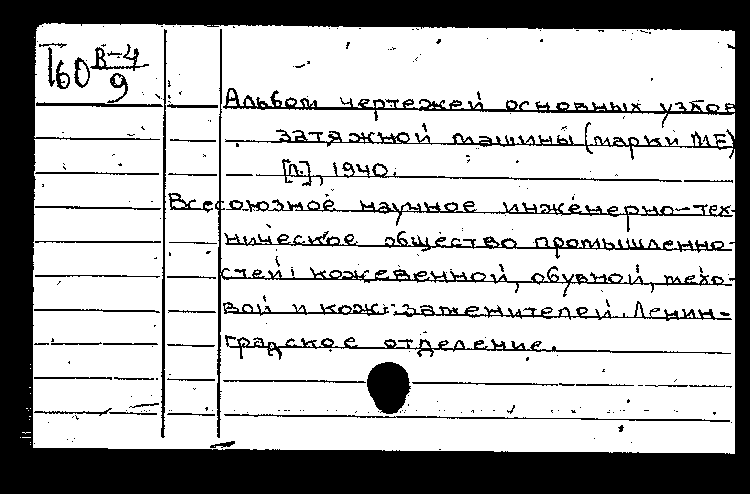 Т60 В-4/9
Альбом чертежей основных узлов
затяжной машины (марки МЕ)
[Л.], 1940.
Всесоюзное научное инженерно-тех-
ническое общество промышленно-
стей: кожевенной, обувной, мехо-
вой и кожзаменителей. Ленин-
градское отделение.